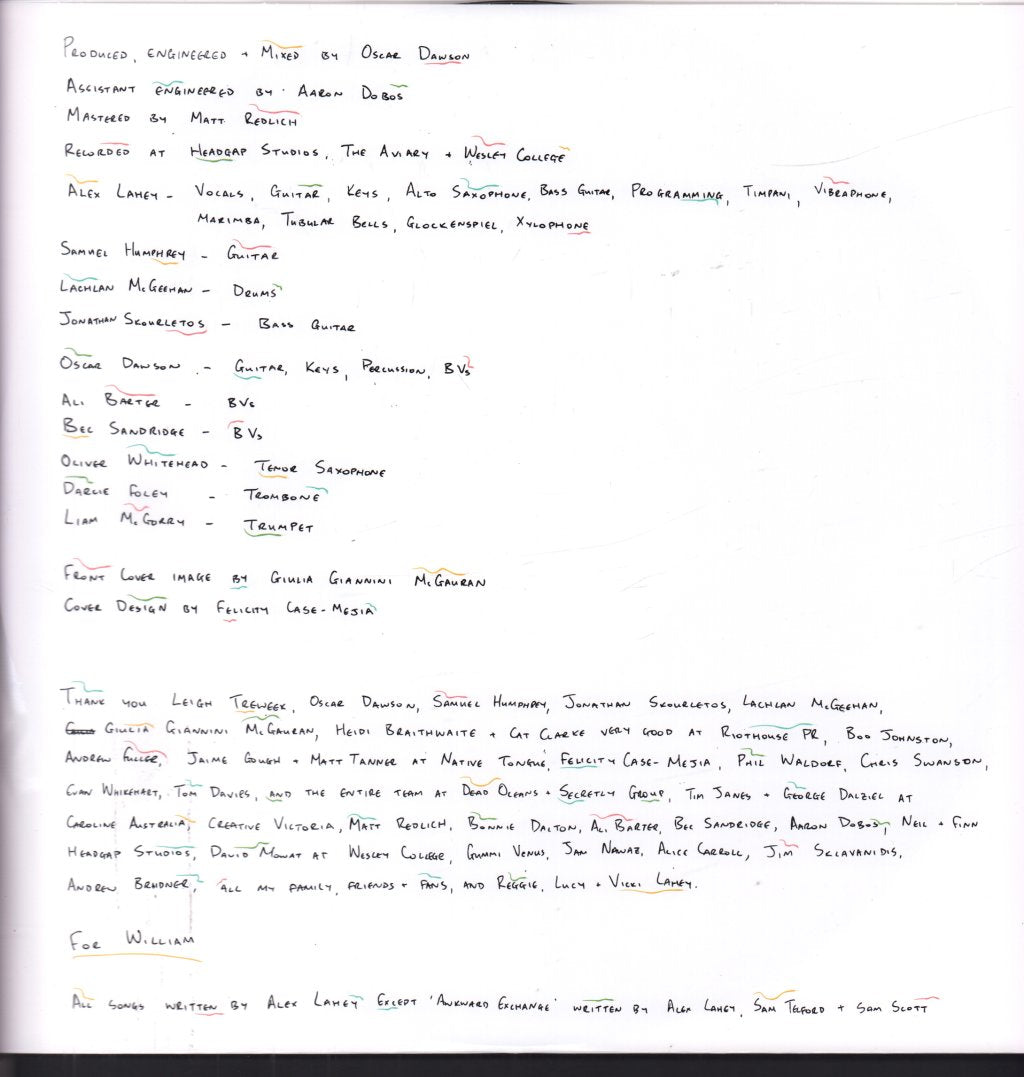 PRODUCED, ENGINEERED + MIXED BY OSCAR DAWSON
ASSISTANT ENGINEERED BY AARON DOBOS
MASTERED BY MATT REDLICH
RECORDED AT HEADGAP STUDIOS, THE AVIARY + WESLEY COLLEGE
ALEX LAHEY - VOCALS, GUITAR, KEYS, ALTO SAXOPHONE, BASS GUITAR, PROGRAMMING, TIMPANI, VIBRAPHONE,
MARIMBA, TUBULAR BELLS, GLOCKENSPIEL, XYLOPHONE
SAMUEL HUMPHREY - GUITAR
LACHLAN McGEEHAN - DRUMS
JONATHAN SKOURLETOS - BASS GUITAR
OSCAR DAWSON - GUITAR, KEYS, PERCUSSION, BVs
ALI BARTER - BVs
BEC SANDRIDGE - BVs
OLIVER WHITEHEAD - TENOR SAXOPHONE
DARCIE FOLEY - TROMBONE
LIAM McGORRY - TRUMPET
FRONT COVER IMAGE BY GIULIA GIANNINI McGAURAN
COVER DESIGN BY FELICITY CASE-MEJIA
THANK YOU LEIGH TREWEEK, OSCAR DAWSON, SAMUEL HUMPHREY, JONATHAN SKOURLETOS, LACHLAN McGEEHAN,
GIULIA GIANNINI McGAURAN, HEIDI BRAITHWAITE + CAT CLARKE VERY GOOD AT RIOTHOUSE PR, BOO JOHNSTON,
ANDREW FULLER, JAIME GOUGH + MATT TANNER AT NATIVE TONGUE, FELICITY CASE-MEJIA, PHIL WALDORF, CHRIS SWANSON,
EVAN WHIKEHART, TOM DAVIES, AND THE ENTIRE TEAM AT DEAD OCEANS + SECRETLY GROUP, TIM JANES + GEORGE DALZIEL AT
CAROLINE AUSTRALIA, CREATIVE VICTORIA, MATT REDLICH, BONNIE DALTON, ALI BARTER, BEC SANDRIDGE, AARON DOBOS, NEIL + FINN
HEADGAP STUDIOS, DAVID MOWAT AT WESLEY COLLEGE, GUMMI VENUS, JAN NAWAZ, ALICE CARROLL, JIM SKLAVANIDIS,
ANDREW BRUDNER, ALL MY FAMILY, FRIENDS + FANS, AND REGGIE, LUCY + VICKI LAHEY.
FOR WILLIAM
ALL SONGS WRITTEN BY ALEX LAHEY EXCEPT 'AWKWARD EXCHANGE' WRITTEN BY ALEX LAHEY, SAM TELFORD + SAM SCOTT